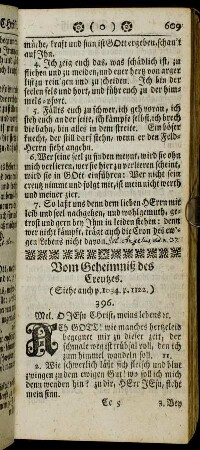 ( 0 ) 609
müthe, krafft und sinn ist GOtt ergeben, schau't
auf Ihn.
4. Ich zeig euch das, was schädlich ist, zu
fliehen und zu meiden, und euer hertz von arger
list zu rein'gen und zu scheiden. Ich bin der
seelen fels und hort, und führ euch zu der him-
mels-pfort.
5. Fällts euch zu schwer, ich geh voran, ich
steh euch an der seite, ich kämpfe selbst, ich brech
die bahn, bin alles in dem streite. Ein böser
knecht, der still darf stehn, wenn er den Feld-
Herrn sieht angehn.
6. Wer seine seel zu finden meynt, wird sie ohn
mich verlieren, wer sie hier zu verlieren scheint,
wird sie in GOtt einführen: Wer nicht sein
creuz nimmt und folgt mir, ist mein nicht werth
und meiner zier.
7. So laßt uns denn dem lieben HErrn mit
leib und seel nachgehen, und wohlgemuth, ge-
trost und gern bey Ihm in leiden stehen: denn
wer nicht kämpft, trägt auch die Cron des ew'-
gen Lebens nicht davon.
Vom Geheimniß des
Creutzes.
(Siehe auch p. 1034. p. 1122.)
396.
Mel. O JEsu Christ, meins lebens rc.
ACh GOTT! wie manches hertzeleid
begegnet mir zu dieser zeit, der
schmale weg ist trübsal voll, den ich
zum himmel wandeln soll.
2. Wie schwerlich läßt sich fleisch und blut
zwingen zu dem ewigen Gut! wo soll ich mich
denn wenden hin? zu dir, HErr JEsu, steht
mein sinn.
Cc 5 3. Bey